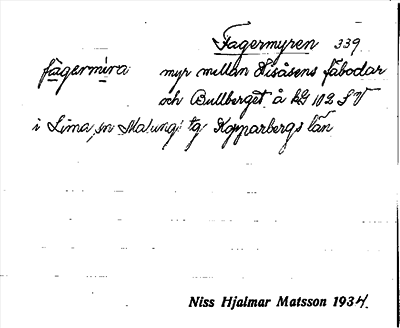 Fagermyren 339
fàgermi̱ra myr mellan Hisåsens fäbodar
och Bullberget å kbl 102 S V
i Lima sn Malungs tg Kopparbergs län
Niss Hjalmar Matsson 1934.